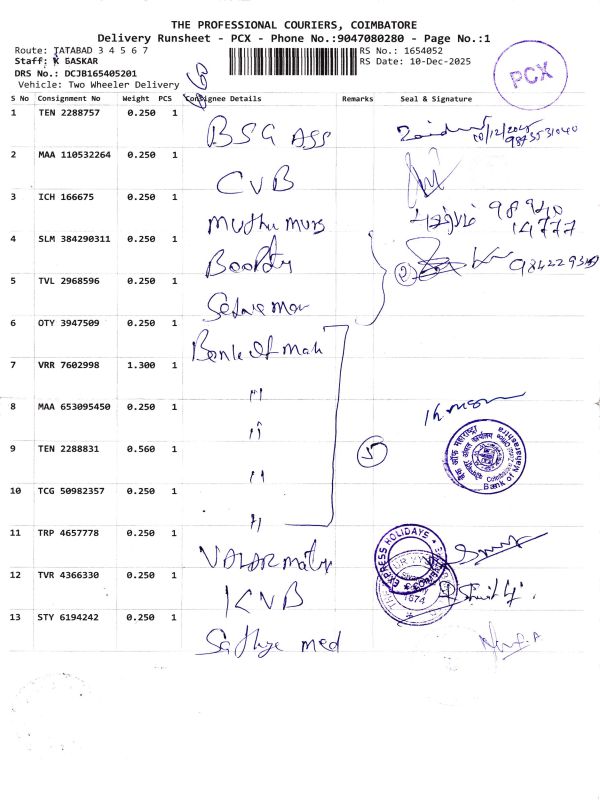 THE PROFESSIONAL COURIERS, COIMBATORE
Delivery Runsheet - PCX - Phone No.:9047080280 - Page No.:1
Route: TATABAD 3 4 5 6 7
RS No.: 1654052
Staff: K BASKAR
RS Date: 10-Dec-2025
DRS No.: DCJB165405201
Vehicle: Two Wheeler Delivery
PCX
S No Consignment No Weight PCS Consignee Details Remarks Seal & Signature
1 TEN 2288757 0.250 1 BSG ASS 10/12/2025
2 MAA 110532264 0.250 1 CVB
3 ICH 166675 0.250 1 Muthu 98940
14777
4 SLM 384290311 0.250 1 2
5 TVL 2968596 0.250 1
6 OTY 3947509 0.250 1 Bank of Mah
7 VRR 7602998 1.300 1 "
8 MAA 653095450 0.250 1 "
9 TEN 2288831 0.560 1 " 5
बैंक ऑफ महाराष्ट्र
Coimbatore
Bank of Maharashtra
10 TCG 50982357 0.250 1 "
11 TRP 4657778 0.250 1
EXPRESS HOLIDAYS
12 TVR 4366330 0.250 1 KVB
1674
13 STY 6194242 0.250 1 Sathya med